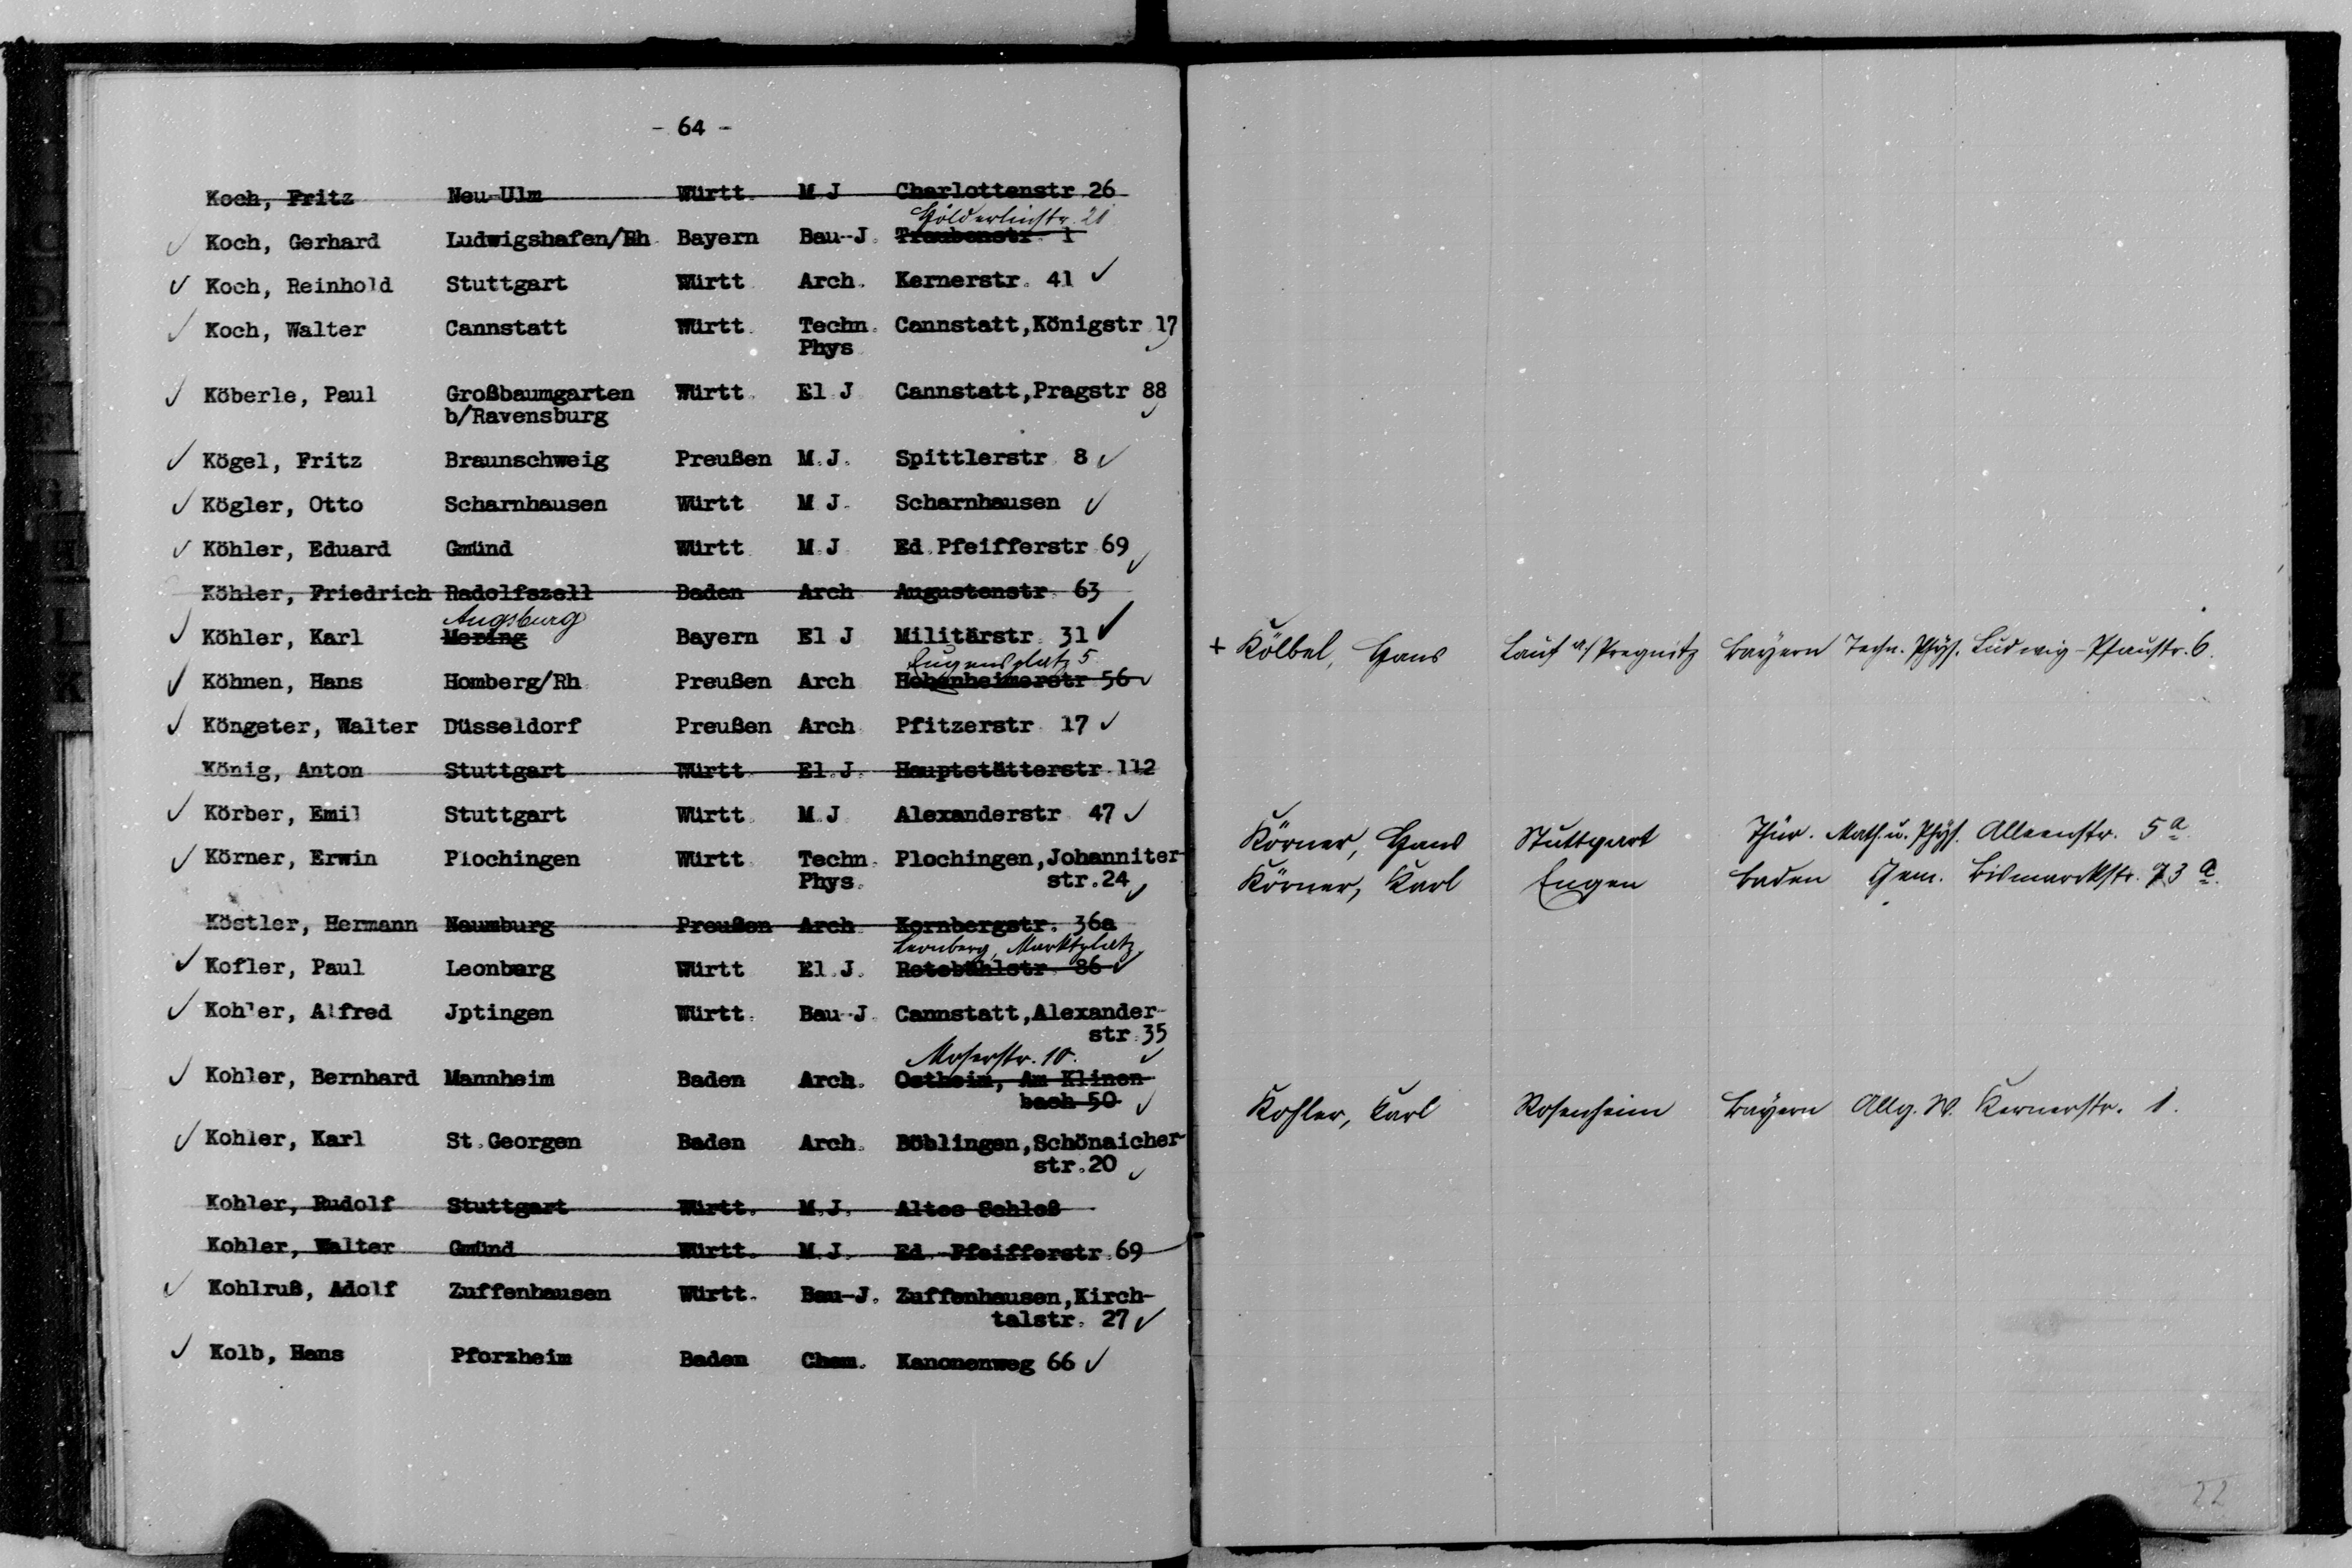 - 64 -
Koch, Fritz Neu-Ulm Württ. M J Charlottenstr 26
Hölderlinstr. 21
Koch, Gerhard Ludwigshafen/Rh. Bayern Bau-J. Traubenstr. 1
Koch, Reinhold Stuttgart Württ Arch. Kernerstr. 41
Koch, Walter Cannstatt Württ. Techn. Cannstatt,Königstr 17
Phys
Köberle, Paul Großbaumgarten Württ. El J Cannstatt,Pragstr 88
b/Ravensburg
Kögel, Fritz Braunschweig Preußen M.J. Spittlerstr 8
Kögler, Otto Scharnhausen Württ M J. Scharnhausen
Köhler, Eduard Gmünd Württ M.J Ed.Pfeifferstr 69
Köhler, Friedrich Radolfszell Baden Arch Augustenstr. 63
Augsburg
Köhler, Karl Mering Bayern El J Militärstr. 31
Eugensplatz 5
Köhnen, Hans Homberg/Rh Preußen Arch Hohenheimerstr 56
Köngeter, Walter Düsseldorf Preußen Arch Pfitzerstr. 17
König, Anton Stuttgart Württ El.J. Hauptstätterstr.112
Körber, Emil Stuttgart Württ. M.J Alexanderstr 47
Körner, Erwin Plochingen Württ Techn. Plochingen,Johanniter-
Phys. str.24
Köstler, Hermann Naumburg Preußen Arch Kornbergstr. 36a
Leonberg, Marktplatz
Kofler, Paul Leonberg Württ El.J. Rotebühlstr 86
Kohler, Alfred Jptingen Württ. Bau-J. Cannstatt,Alexander-
str.35
Moserstr. 10.
Kohler, Bernhard Mannheim Baden Arch. Ostheim, Am Klinen-
bach 50
Kohler, Karl St.Georgen Baden Arch. Böblingen,Schönaicher-
str.20
Kohler, Rudolf Stuttgart Württ. M.J. Altes Schloß
Kohler, Walter Gmünd Württ. M.J. Ed. Pfeifferstr.69
Kohlruß, Adolf Zuffenhausen Württ. Bau-J. Zuffenhausen,Kirch-
talstr. 27
Kolb, Hans Pforzheim Baden Chem. Kanonenweg 66
+ Kölbel, Hans Lauf a/Pregnitz Bayern Techn. Phys. Ludwig-Pfaustr. 6.
Körner, Hans Stuttgart Thür. Math. u. Phys. Alleenstr. 5a
Körner, Karl Engen Baden Gem. Bismarckstr. 73a.
Kohler, Karl Rosenheim Bayern Allg. W. Kernerstr. 1.
22